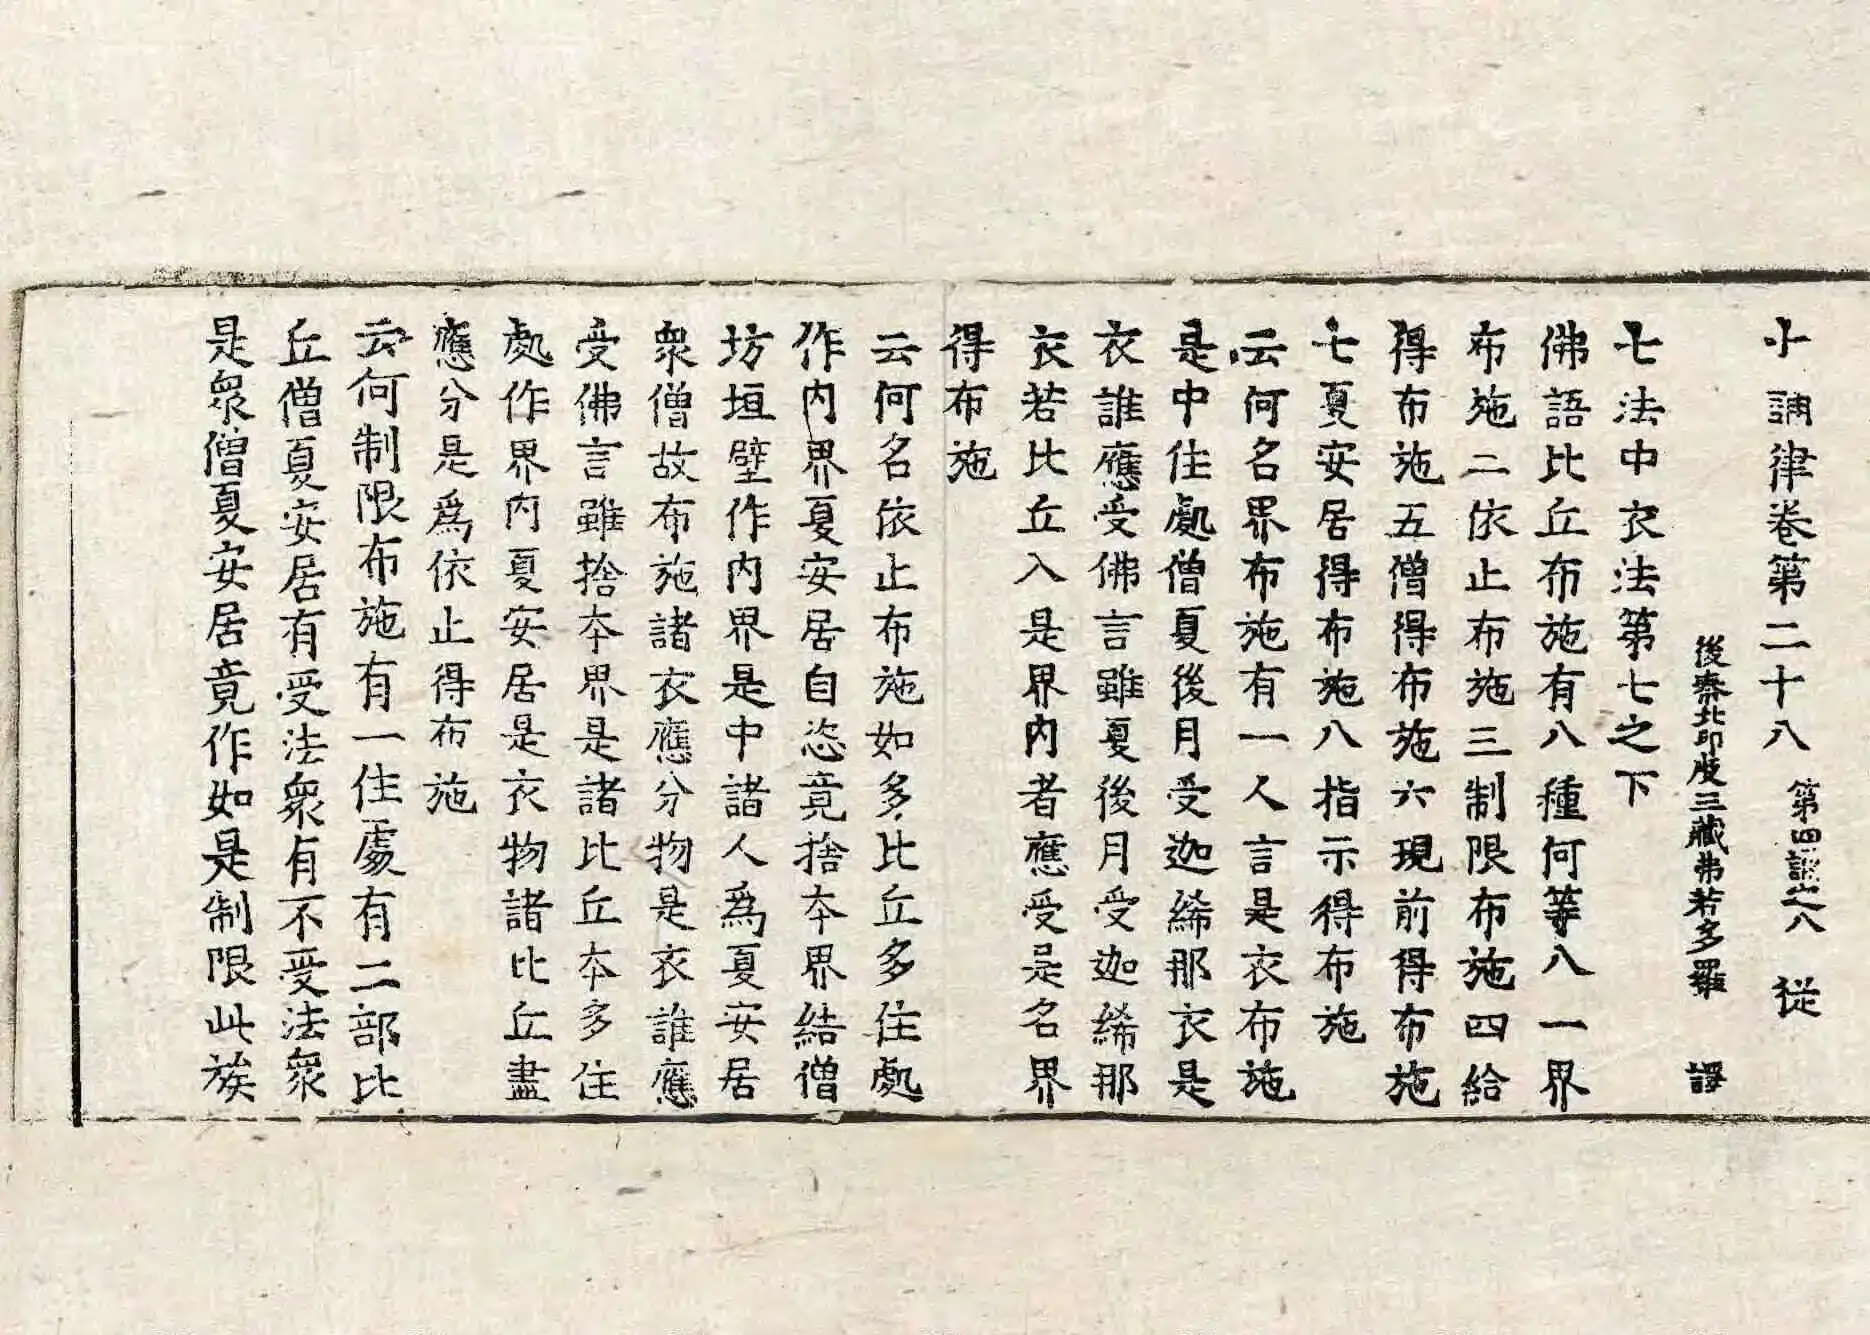 十誦律卷第二十八 第四誦之八 從
後秦北印度三藏弗若多羅 譯
七法中衣法第七之下
佛語比丘布施有八種何等八一界
布施二依止布施三制限布施四給
得布施五僧得布施六現前得布施
七夏安居得布施八指示得布施
云何名界布施有一人言是衣布施
是中住處僧夏後月受迦絺那衣是
衣誰應受佛言雖夏後月受迦絺那
衣若比丘入是界內者應受是名界
得布施
云何名依止布施如多比丘多住處
作內界夏安居自恣竟捨本界結僧
坊垣壁作內界是中諸人為夏安居
眾僧故布施諸衣應分物是衣誰應
受佛言雖捨本界是諸比丘本多住
處作界內夏安居是衣物諸比丘盡
應分是為依止得布施
云何制限布施有一住處有二部比
丘僧夏安居有受法眾有不受法眾
是眾僧夏安居竟作如是制限此族